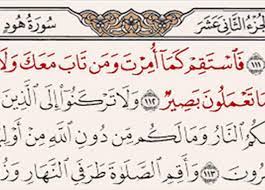 الجُزءُ الثَّانِى عَشَرَ سُورَةُ هُودٍ
١١١ فَٱسْتَقِمْ كَمَآ أُمِرْتَ وَمَن تَابَ مَعَكَ وَلَا
مَا تَعْمَلُونَ بَصِيرٌ ١١٢ وَلَا تَرْكَنُوٓا۟ إِلَى ٱلَّذِينَ
كُمُ ٱلنَّارُ وَمَا لَكُم مِّن دُونِ ٱللَّهِ مِنْ أَوْلِ
رُونَ ١١٣ وَأَقِمِ ٱلصَّلَوٰةَ طَرَفَىِ ٱلنَّهَارِ وَزُ